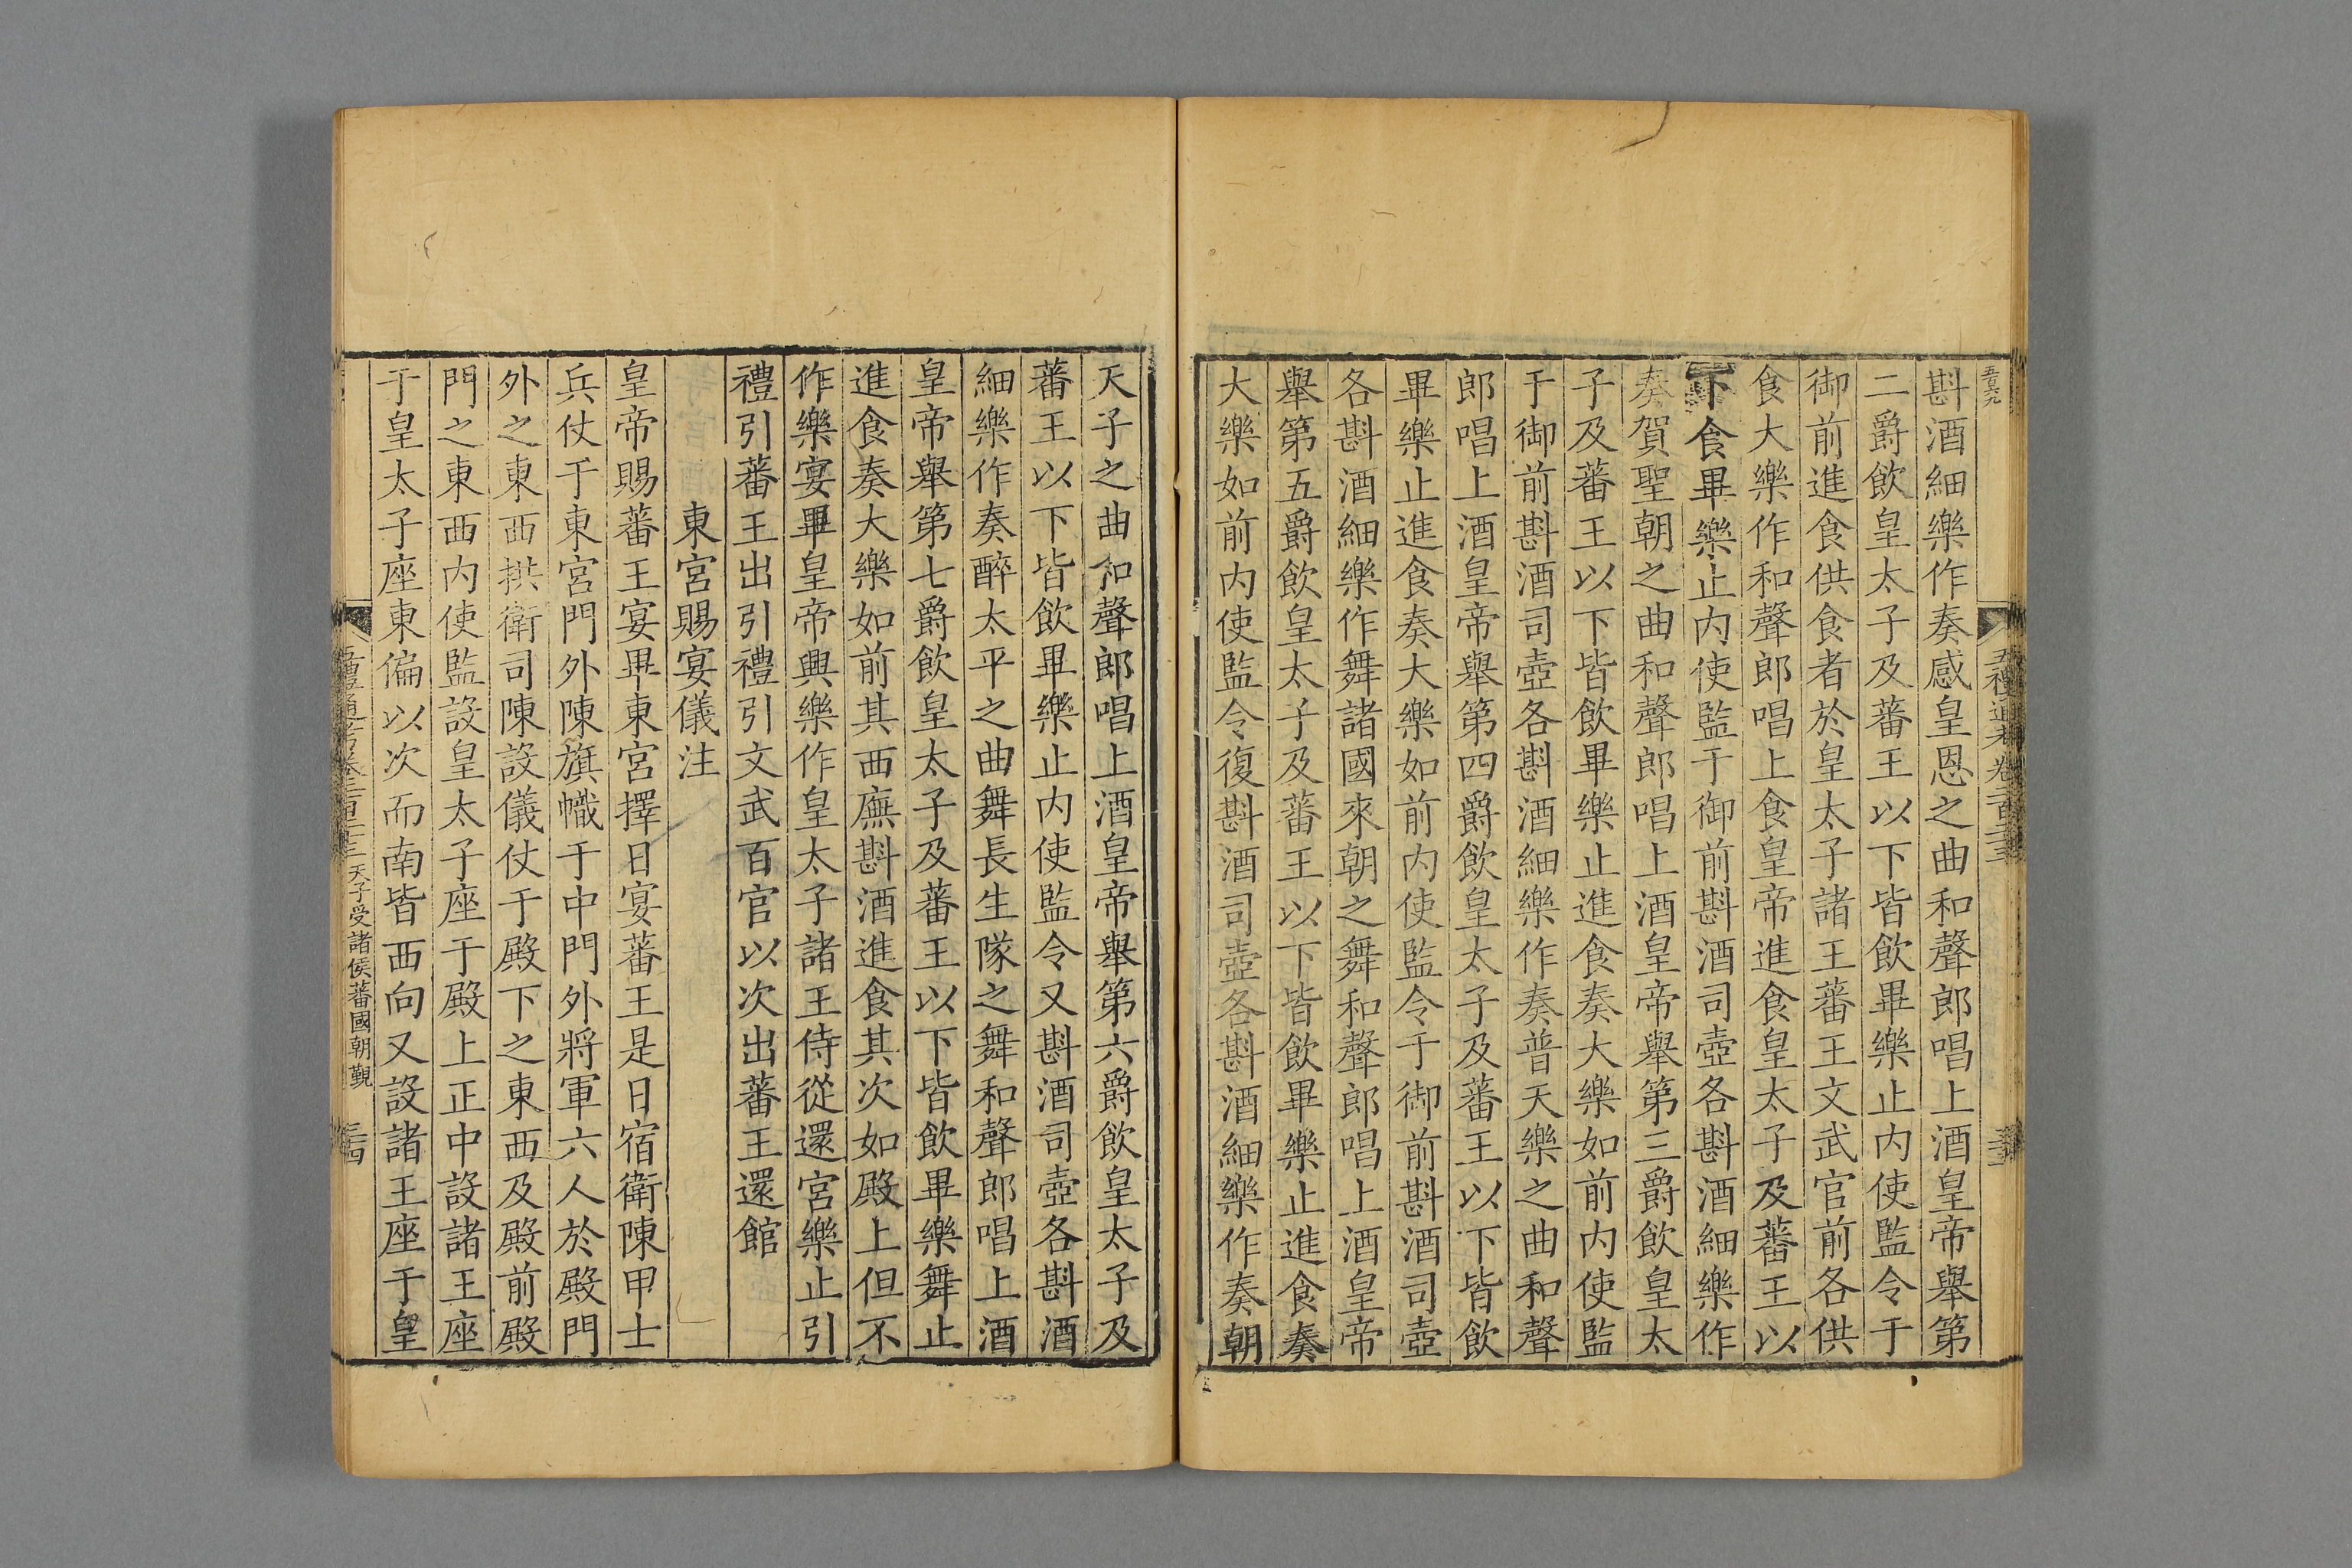 五百六九
五禮通考卷二百二十三
斟酒細樂作奏感皇恩之曲和聲郎唱上酒皇帝舉第
二爵飲皇太子及蕃王以下皆飲畢樂止内使監令于
御前進食供食者於皇太子諸王蕃王文武官前各供
食大樂作和聲郎唱上食皇帝進食皇太子及蕃王以
下食畢樂止内使監于御前斟酒司壺各斟酒細樂作
奏賀聖朝之曲和聲郎唱上酒皇帝舉第三爵飲皇太
子及蕃王以下皆飲畢樂止進食奏大樂如前内使監
于御前斟酒司壺各斟酒細樂作奏普天樂之曲和聲
郎唱上酒皇帝舉第四爵飲皇太子及蕃王以下皆飲
畢樂止進食奏大樂如前内使監令于御前斟酒司壺
各斟酒細樂作舞諸國來朝之舞和聲郎唱上酒皇帝
舉第五爵飲皇太子及蕃王以下皆飲畢樂止進食奏
大樂如前内使監令復斟酒司壺各斟酒細樂作奏朝
天子之曲和聲郎唱上酒皇帝舉第六爵飲皇太子及
蕃王以下皆飲畢樂止内使監令又斟酒司壺各斟酒
細樂作奏醉太平之曲舞長生隊之舞和聲郎唱上酒
皇帝舉第七爵飲皇太子及蕃王以下皆飲畢樂舞止
進食奏大樂如前其西廡斟酒進食其次如殿上但不
作樂宴畢皇帝興樂作皇太子諸王侍從還宮樂止引
禮引蕃王出引禮引文武百官以次出蕃王還館
東宮賜宴儀注
皇帝賜蕃王宴畢東宮擇日宴蕃王是日宿衛陳甲士
兵仗于東宮門外陳旗幟于中門外將軍六人於殿門
外之東西拱衛司陳設儀仗于殿下之東西及殿前殿
門之東西内使監設皇太子座于殿上正中設諸王座
于皇太子座東偏以次而南皆西向又設諸王座于皇
五禮通考卷二百二十三 天子受諸侯蕃國朝覲 三四